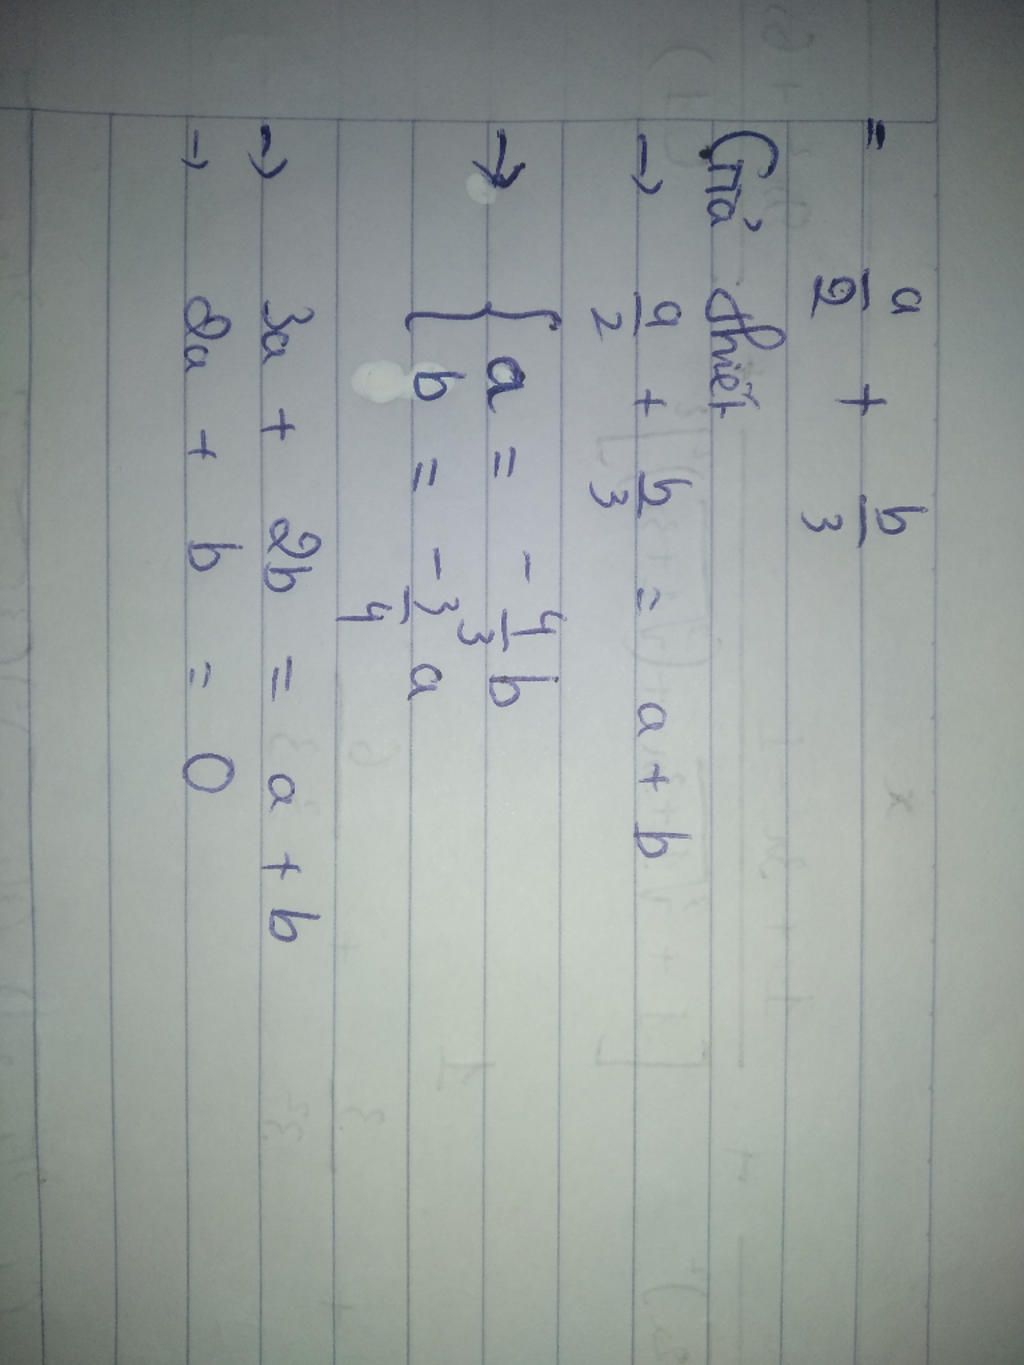 = a/2 + b/3
Giả thiết
→ a/2 + b/3 = a + b
→ { a = -4/3 b
{ b = -3/4 a
→ 3a + 2b = a + b
→ 2a + b = 0